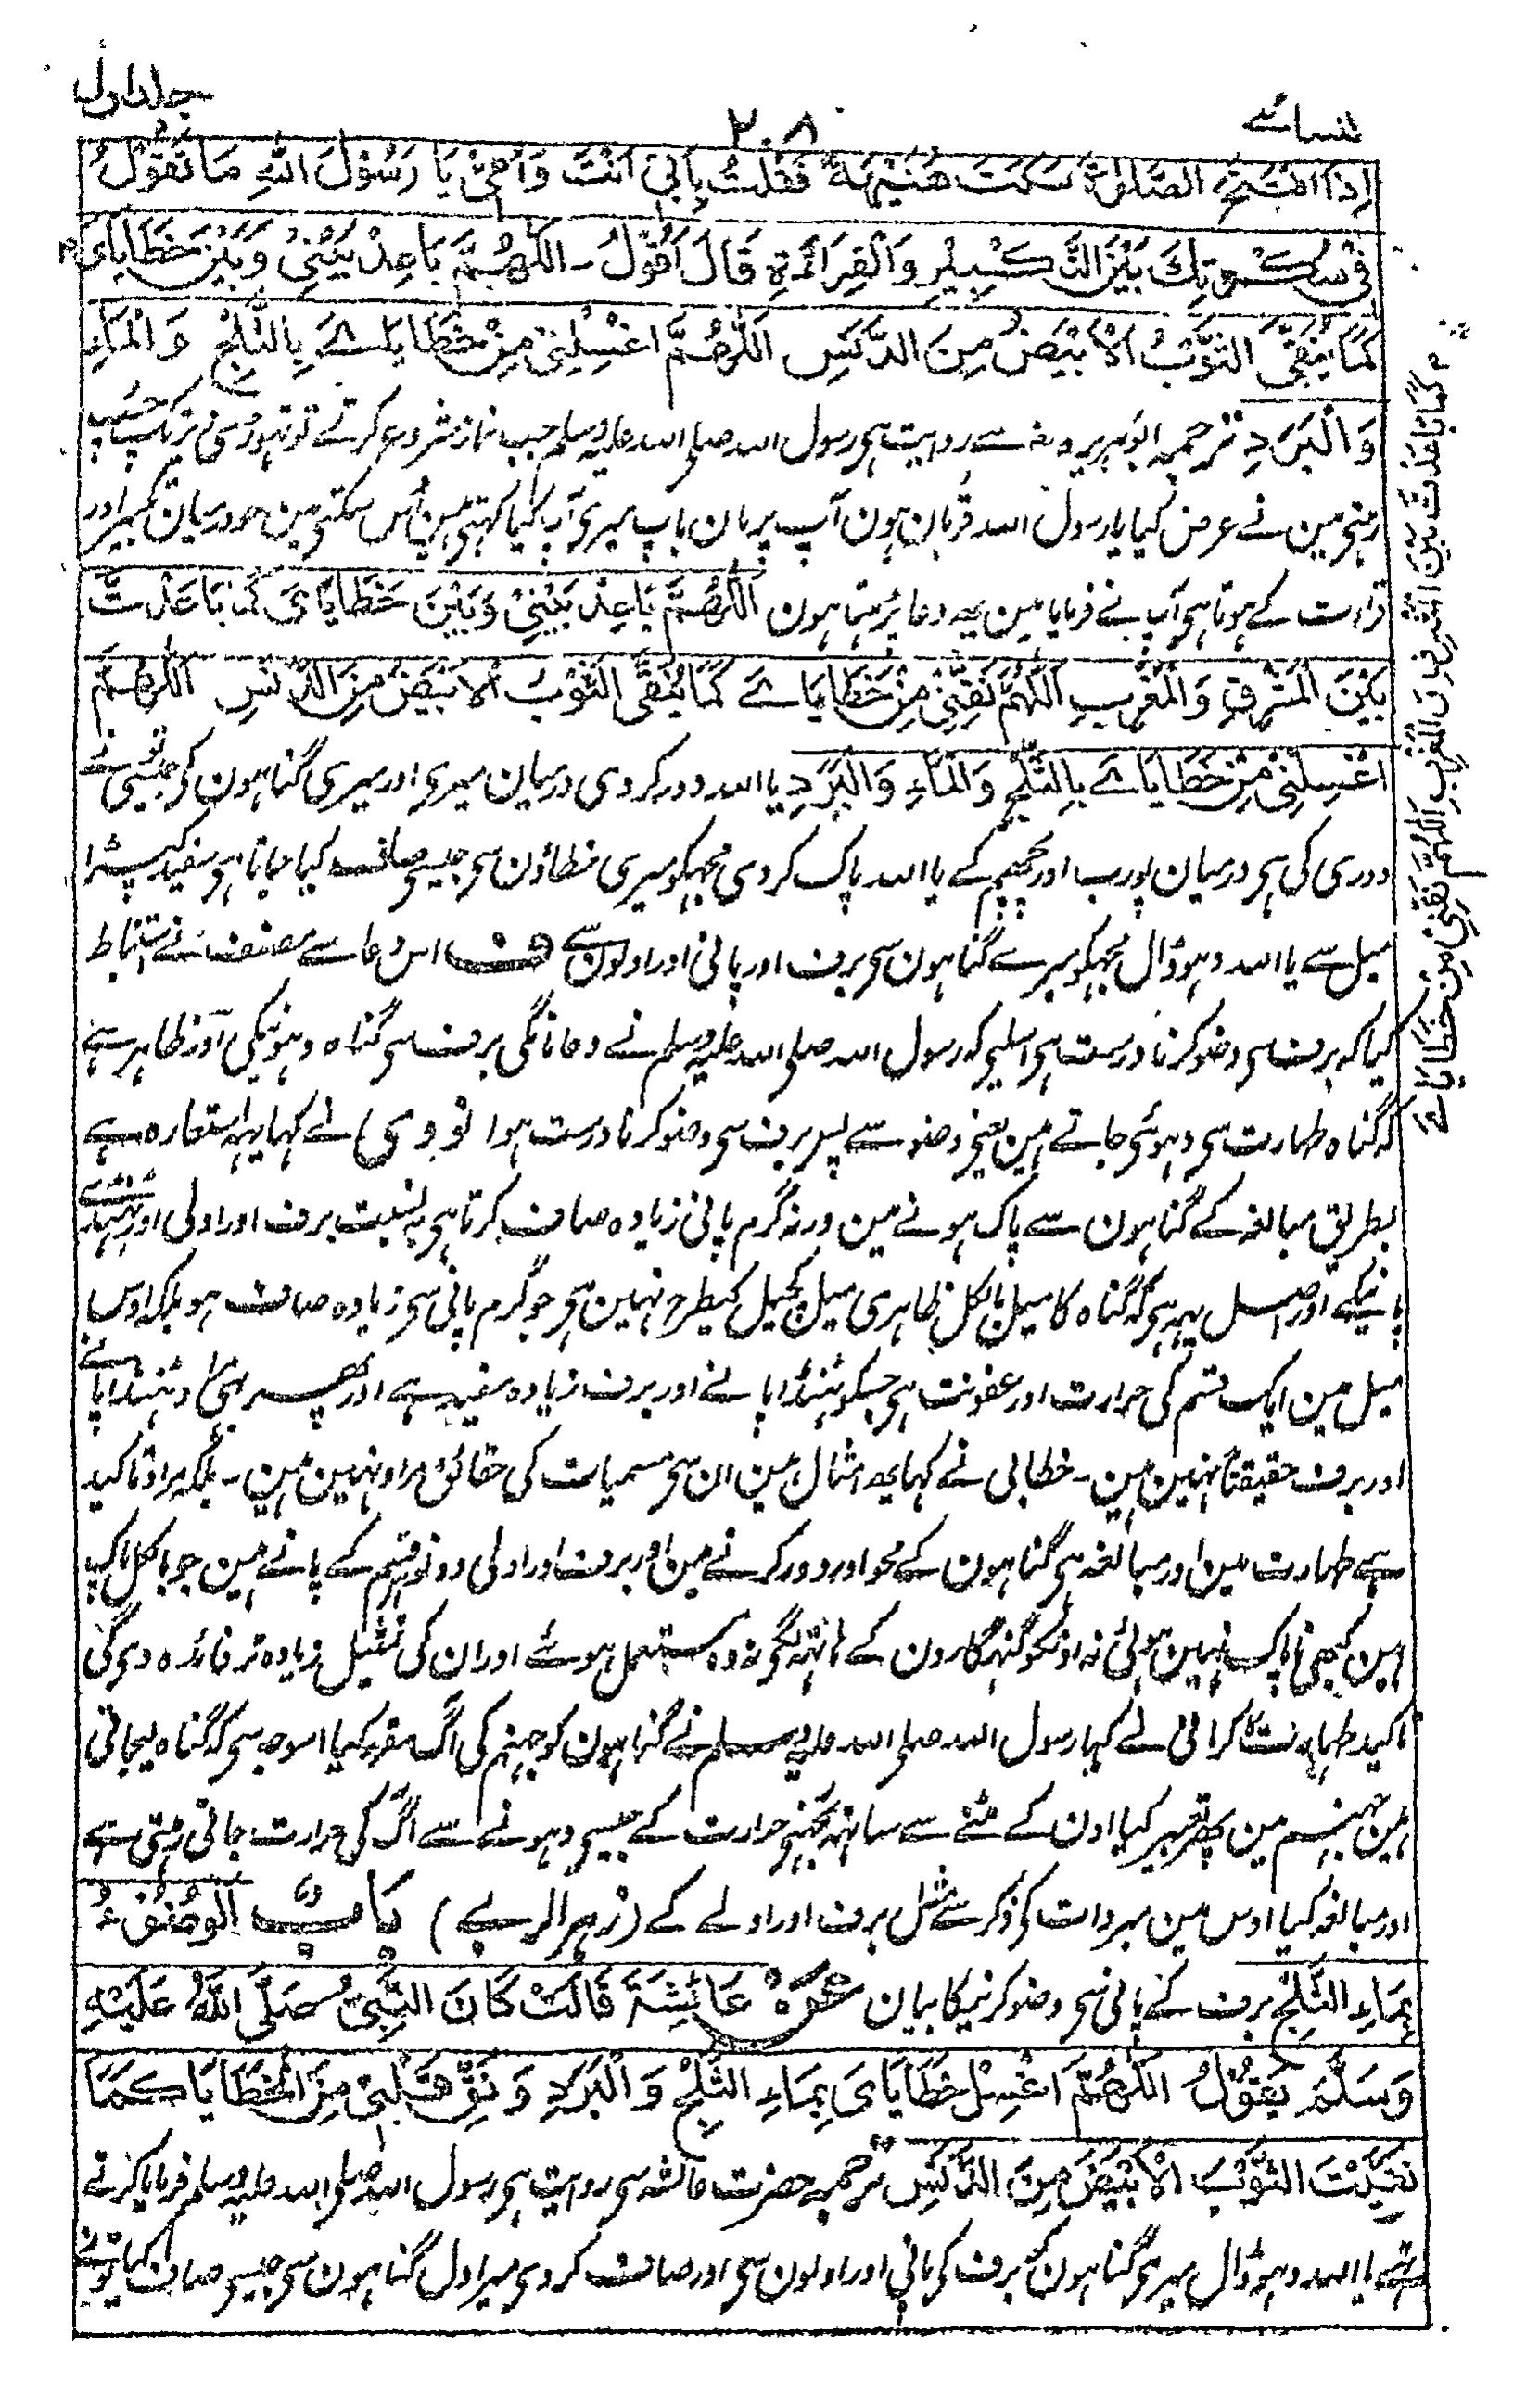 نسائے
۲۰۸
جلداول
اِذَا افْتَتَحَ الصَّلٰوةَ سَكَتَ هُنَيْهَةً فَقُلْتُ بِاَبِيْ اَنْتَ وَاُمِّيْ يَا رَسُوْلَ اللّٰهِ مَا تَقُوْلُ
فِيْ سُكُوْتِكَ بَيْنَ التَّكْبِيْرِ وَالْقِرَاءَةِ قَالَ اَقُوْلُ ۔ اَللّٰهُمَّ بَاعِدْ بَيْنِيْ وَبَيْنَ خَطَايَايَ
كَمَا يُنَقَّى الثَّوْبُ الْاَبْيَضُ مِنَ الدَّنَسِ اَللّٰهُمَّ اغْسِلْنِيْ مِنْ خَطَايَاىَ بِالثَّلْجِ وَالْمَاءِ
وَالْبَرَدِ ترجمہ ابوہریرہ رضہ سے روایت ہی رسول اللہ صلی اللہ علیہ وسلم جب نماز شروع کرتے تو تہوڑسی دیر تک چپ
رہتی مین نے عرض کیا یا رسول اللہ قربان ہون آپ پر مان باپ میری آپ کیا کہتی ہین اُس سکتی مین جو درمیان تکبیر اور
قراءت کے ہوتا ہی آپ نے فرمایا مین یہہ دعا پڑہتا ہون اَللّٰهُمَّ بَاعِدْ بَيْنِيْ وَبَيْنَ خَطَايَايَ كَمَا بَاعَدْتَّ
بَيْنَ الْمَشْرِقِ وَالْمَغْرِبِ اَللّٰهُمَّ نَقِّنِيْ مِنْ خَطَايَاىَ كَمَا يُنَقَّى الثَّوْبُ الْاَبْيَضُ مِنَ الدَّنَسِ اَللّٰهُمَّ
اغْسِلْنِيْ مِنْ خَطَايَاىَ بِالثَّلْجِ وَالْمَاءِ وَالْبَرَدِ یا اللہ دور کردی درمیان میری اور میری گناہون کو جیسی تونے
دوری کی ہی درمیان پورب اور پچہم کے یا اللہ پاک کردی مجہکو میری خطاؤن سی جیسی صاف کیا جاتا ہی سفید کپڑا
میل سے یا اللہ دہو ڈال مجہکو میرے گناہون سی برف اور پانی اور اولون سے ف اس دعا سے مصنف نے استنباط
کیا کہ برف سی وضو کرنا درست ہی اسلیی کہ رسول اللہ صلی اللہ علیہ وسلم نے دعا مانگی برف سی گناہ دہونیکی اور ظاہر ہے
کہ گناہ طہارت سی دہوئی جاتے ہین یعنی وضو سے پس برف سی وضو کرنا درست ہوا نووی) نے کہا یہہ استعارہ ہے
بطریق مبالغہ کے گناہون سے پاک ہونے مین ورنہ گرم پانی زیادہ صاف کرتا ہی بہ نسبت برف اور اولی اور ٹہنڈے
پانیکے اور اصل یہہ ہی کہ گناہ کا میل بالکل ظاہری میل کچیل کیطرح نہین ہی جو گرم پانی سی زیادہ صاف ہو بلکہ اوس
میل مین ایک قسم کی حرارت اور عفونت ہی جسکو ٹہنڈا پانے اور برف زیادہ مفید ہے اور پھر بھی ٹہنڈا پانے
اور برف حقیقتاً نہین ہین ۔ خطابی نے کہا یہہ امثال ہین ان سی مسمیات کی حقائق مراد نہین ہین ۔ بلکہ مراد تاکید
ہے طہارت مین اور مبالغہ ہی گناہون کے محو اور دور کرنے مین اور برف اور اولی دونو قسم کے پانے ہین جو بالکل پاک
ہین کبھی ناپاک نہین ہوئی نہ اونکو گنہگارون کے ہاتہہ لگی نہ وہ مستعمل ہوئے اور ان کی تمثیل زیادہ تر فائدہ دی گی
تاکید طہارت کا کرمانی نے کہا رسول اللہ صلی اللہ علیہ وسلم نے گناہون کو جہنم کی آگ مقرر کیا اسوجہ سی کہ گناہ لیجاتی
ہین جہنم مین پھر تعبیر کیا اون کے مٹنے سے ساتہہ بجہنے حرارت کے جیسی دہونے سے آگ کی حرارت جاتی رہتی ہے
اور مبالغہ کیا اوس مین مبردات کو ذکر سے مثل برف اور اولے کے (زہر الربے) بَابُ الْوُضُوْءِ
بِمَاءِ الثَّلْجِ برف کے پانی سی وضو کرنیکا بیان عَنْ عَائِشَةَ قَالَتْ كَانَ النَّبِيُّ صَلَّى اللّٰهُ عَلَيْهِ
وَسَلَّمَ يَقُوْلُ اَللّٰهُمَّ اغْسِلْ خَطَايَايَ بِمَاءِ الثَّلْجِ وَالْبَرَدِ وَنَقِّ قَلْبِيْ مِنَ الْخَطَايَا كَمَا
نَقَّيْتَ الثَّوْبَ الْاَبْيَضَ مِنَ الدَّنَسِ ترجمہ حضرت عائشہ سی روایت ہی رسول اللہ صلی اللہ علیہ وسلم فرمایا کرتے
تہے یا اللہ دہو ڈال میری گناہون کو برف کی پانی اور اولون سی اور صاف کردی میرا دل گناہون سی جیسی صاف کیا تونے
كَمَا بَاعَدْتَّ بَيْنَ الْمَشْرِقِ وَالْمَغْرِبِ اَللّٰهُمَّ نَقِّنِيْ مِنْ خَطَايَاىَ